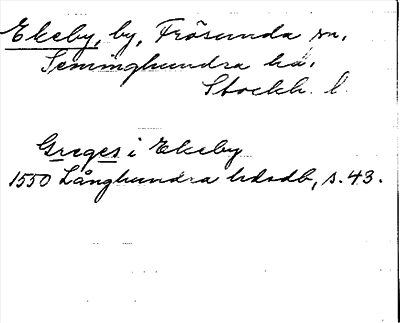 Ekeby, by, Frösunda sn,
Seminghundra hd,
Stockh. l.
Greges i Ekeby
1550 Långhundra hdsdb, s. 43.